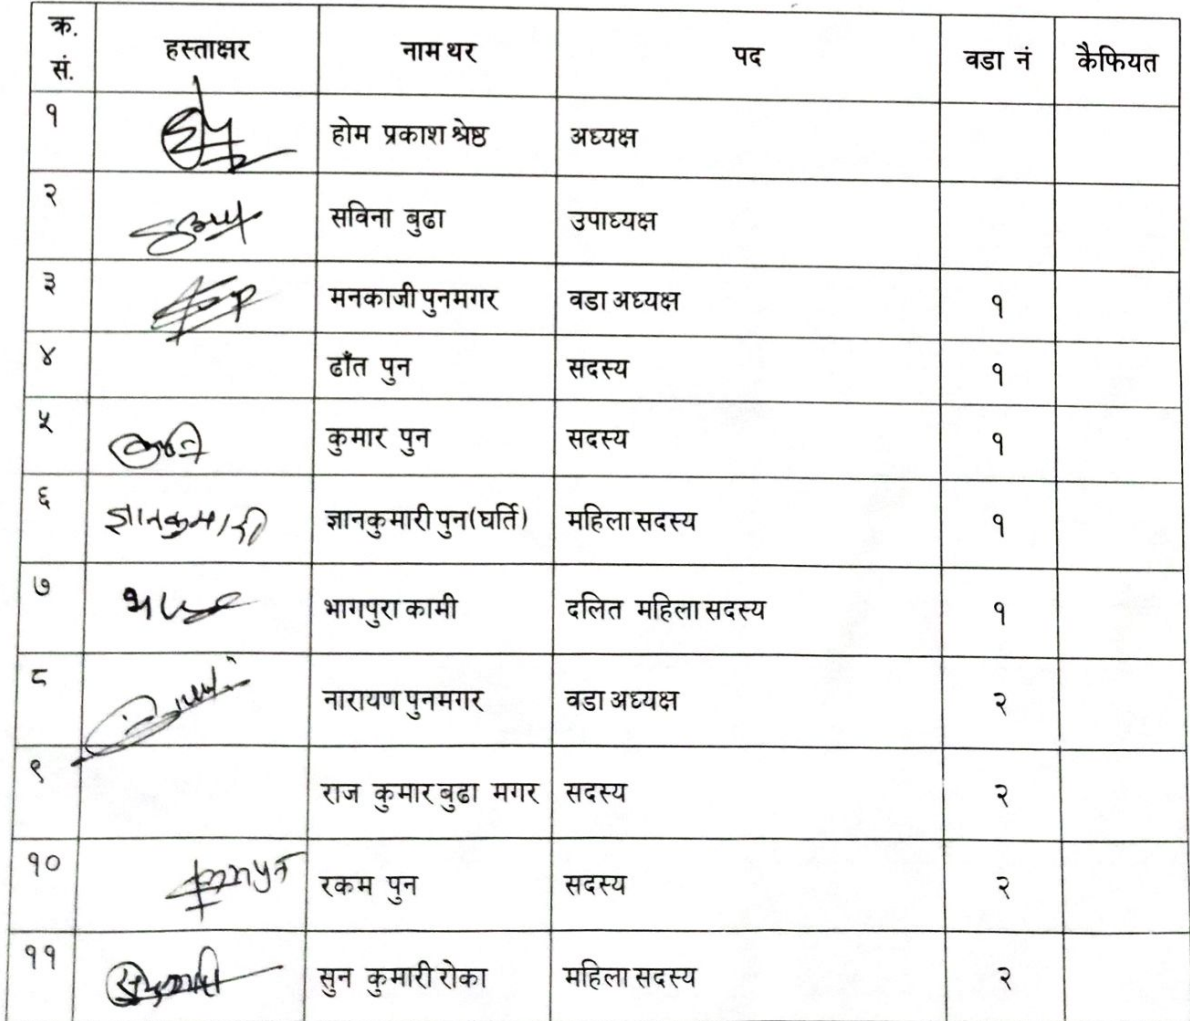 क्र. सं. हस्ताक्षर नाम थर पद वडा नं कैफियत
१ होम प्रकाश श्रेष्ठ अध्यक्ष
२ सविना बुढा उपाध्यक्ष
३ मनकाजी पुनमगर वडा अध्यक्ष १
४ ढाँत पुन सदस्य १
५ कुमार पुन सदस्य १
६ ज्ञानकुमारी ज्ञानकुमारी पुन(घर्ति) महिला सदस्य १
७ भागपुरा कामी दलित महिला सदस्य १
८ नारायण पुनमगर वडा अध्यक्ष २
९ राज कुमार बुढा मगर सदस्य २
१० रकम पुन सदस्य २
११ सुन कुमारी रोका महिला सदस्य २